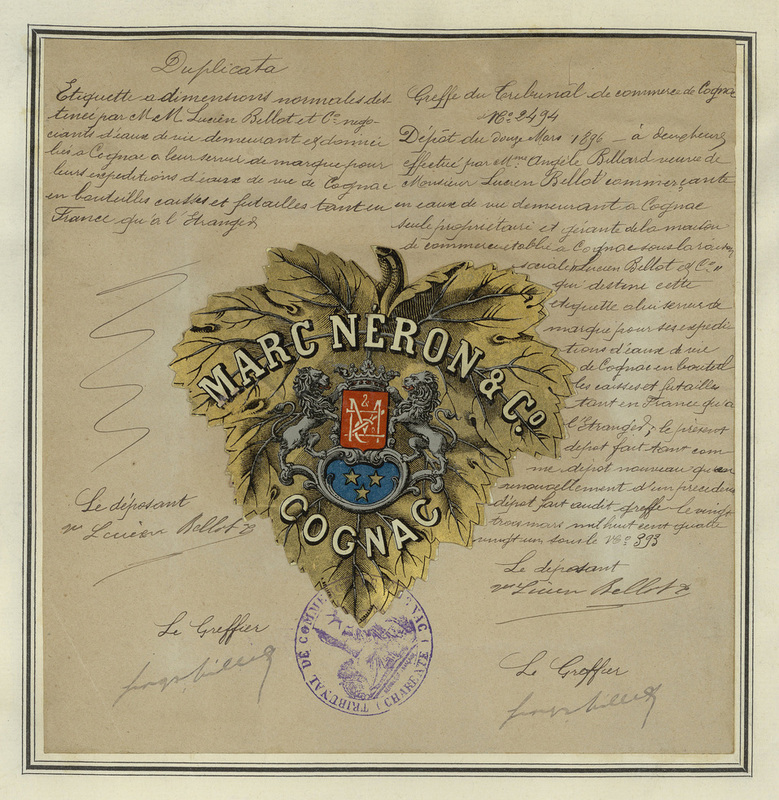 Duplicata
Etiquette a dimensions normales des
tinée par MM Lucien Bellot et Co négo-
ciants d'eaux de vie demeurant et domici
liés à Cognac a leur servir de marque pour
leurs expeditions d'eaux de vie de Cognac
en bouteilles caisses et futailles tant en
France qu'a l'Etranger
Le déposant
ve Lucien Bellot
Le Greffier
Greffe du Tribunal de commerce de Cognac
No 2494
Dépôt du douze Mars 1896 - à deux heures
effectué par Mme Angèle Billard veuve de
Monsieur Lucien Bellot commerçante
en eaux de vie demeurant à Cognac
seule propriétaire et gérante de la maison
de commerce établie à Cognac sous la raison
sociale Lucien Bellot & Co "
qui destine cette
etiquette a lui servir de
marque pour ses expedi-
tions d'eaux de vie
de Cognac en bouteil
les caisses et futailles
tant en France qu'a
l'Etranger; le présent
depot fait tant com
me depot nouveau qu'en
renouvellement d'un precedent
dépôt fait audit greffe le vingt
trois mars mil huit cent quatre
vingt un sous le No 393
Le déposant
ve Lucien Bellot
Le Greffier
MARC NÉRON & Co.
COGNAC
TRIBUNAL DE COMME NAC (CHARENTE)